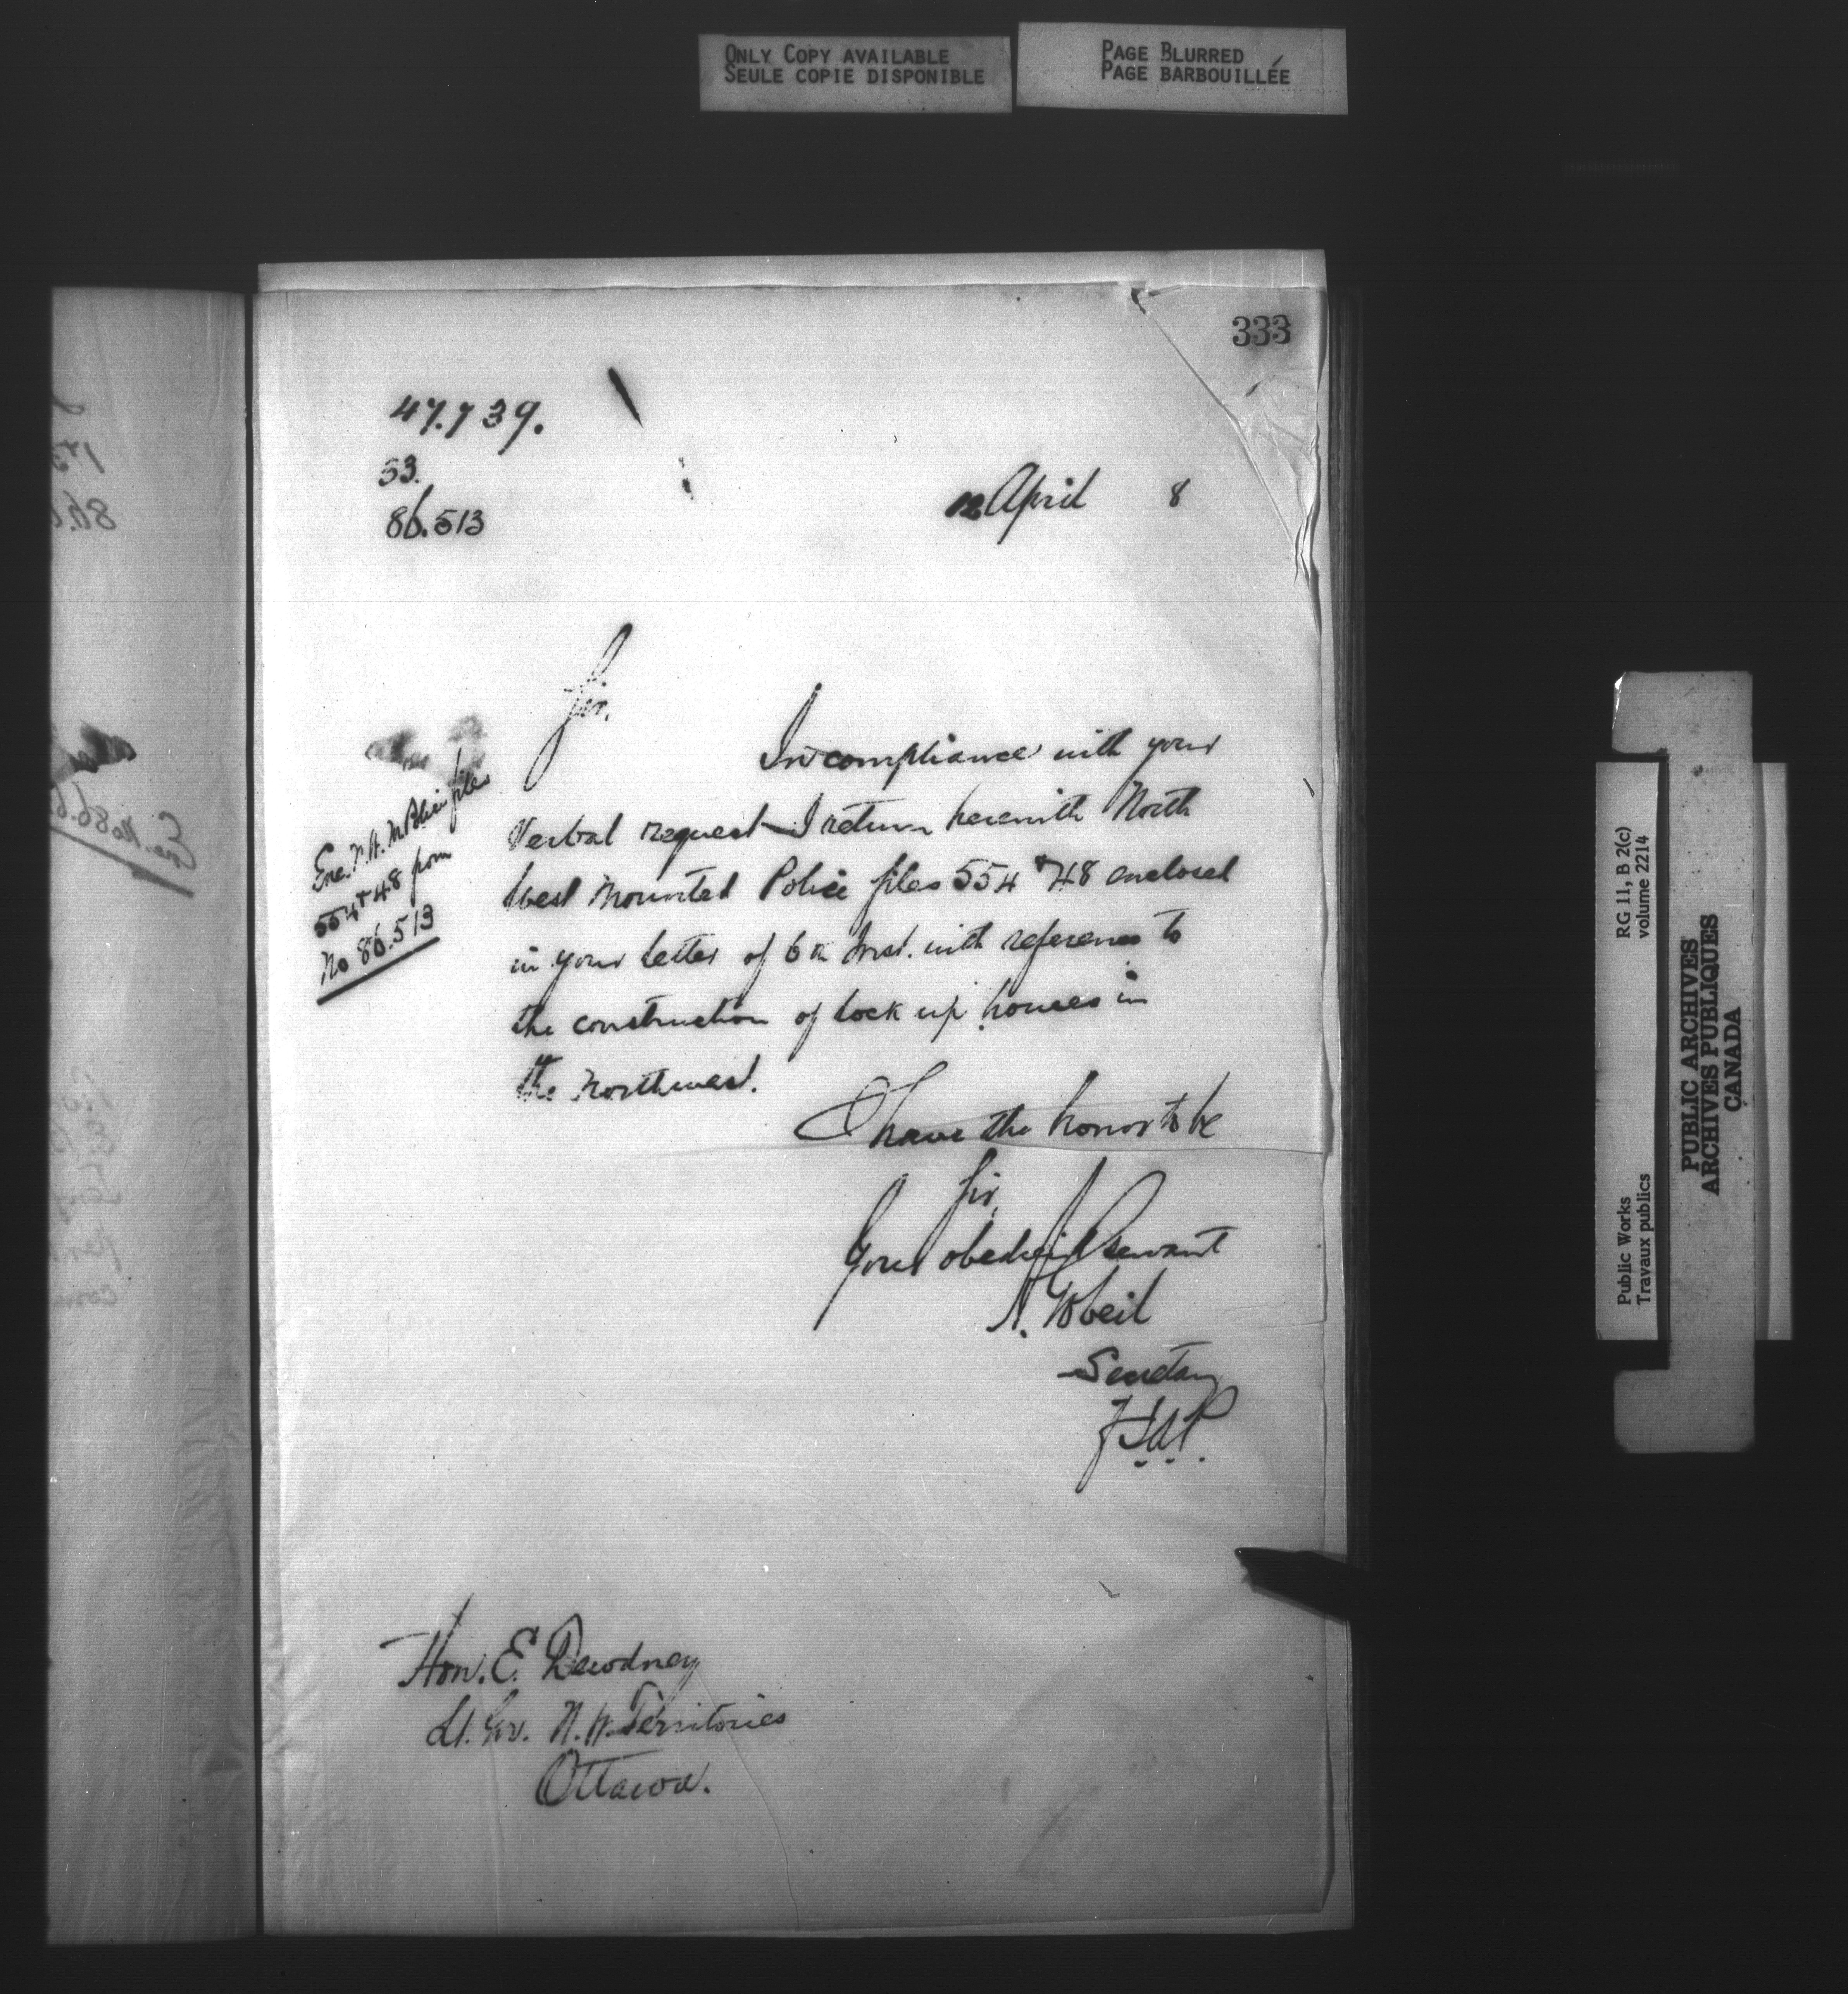 ONLY COPY AVAILABLE
SEULE COPIE DISPONIBLE
PAGE BLURRED
PAGE BARBOUILLÉE
333
47.739.
53.
86.513
12 April 8
Sir,
In compliance with your
Verbal request I return herewith North
West Mounted Police files 554 & 48 enclosed
in your letter of 6th Inst. with reference to
the construction of lock up houses in
the Northwest.
Enc. N.W.M. Police files
554 & 48 from
No 86.513
I have the honor to be
Sir,
Your obedient servant
A. Gobeil
Secretary
Hon. E. Dewdney
Lt. Gov. N.W. Territories
Ottawa.
RG 11, B 2(c)
volume 2214
Public Works
Travaux publics
PUBLIC ARCHIVES
ARCHIVES PUBLIQUES
CANADA